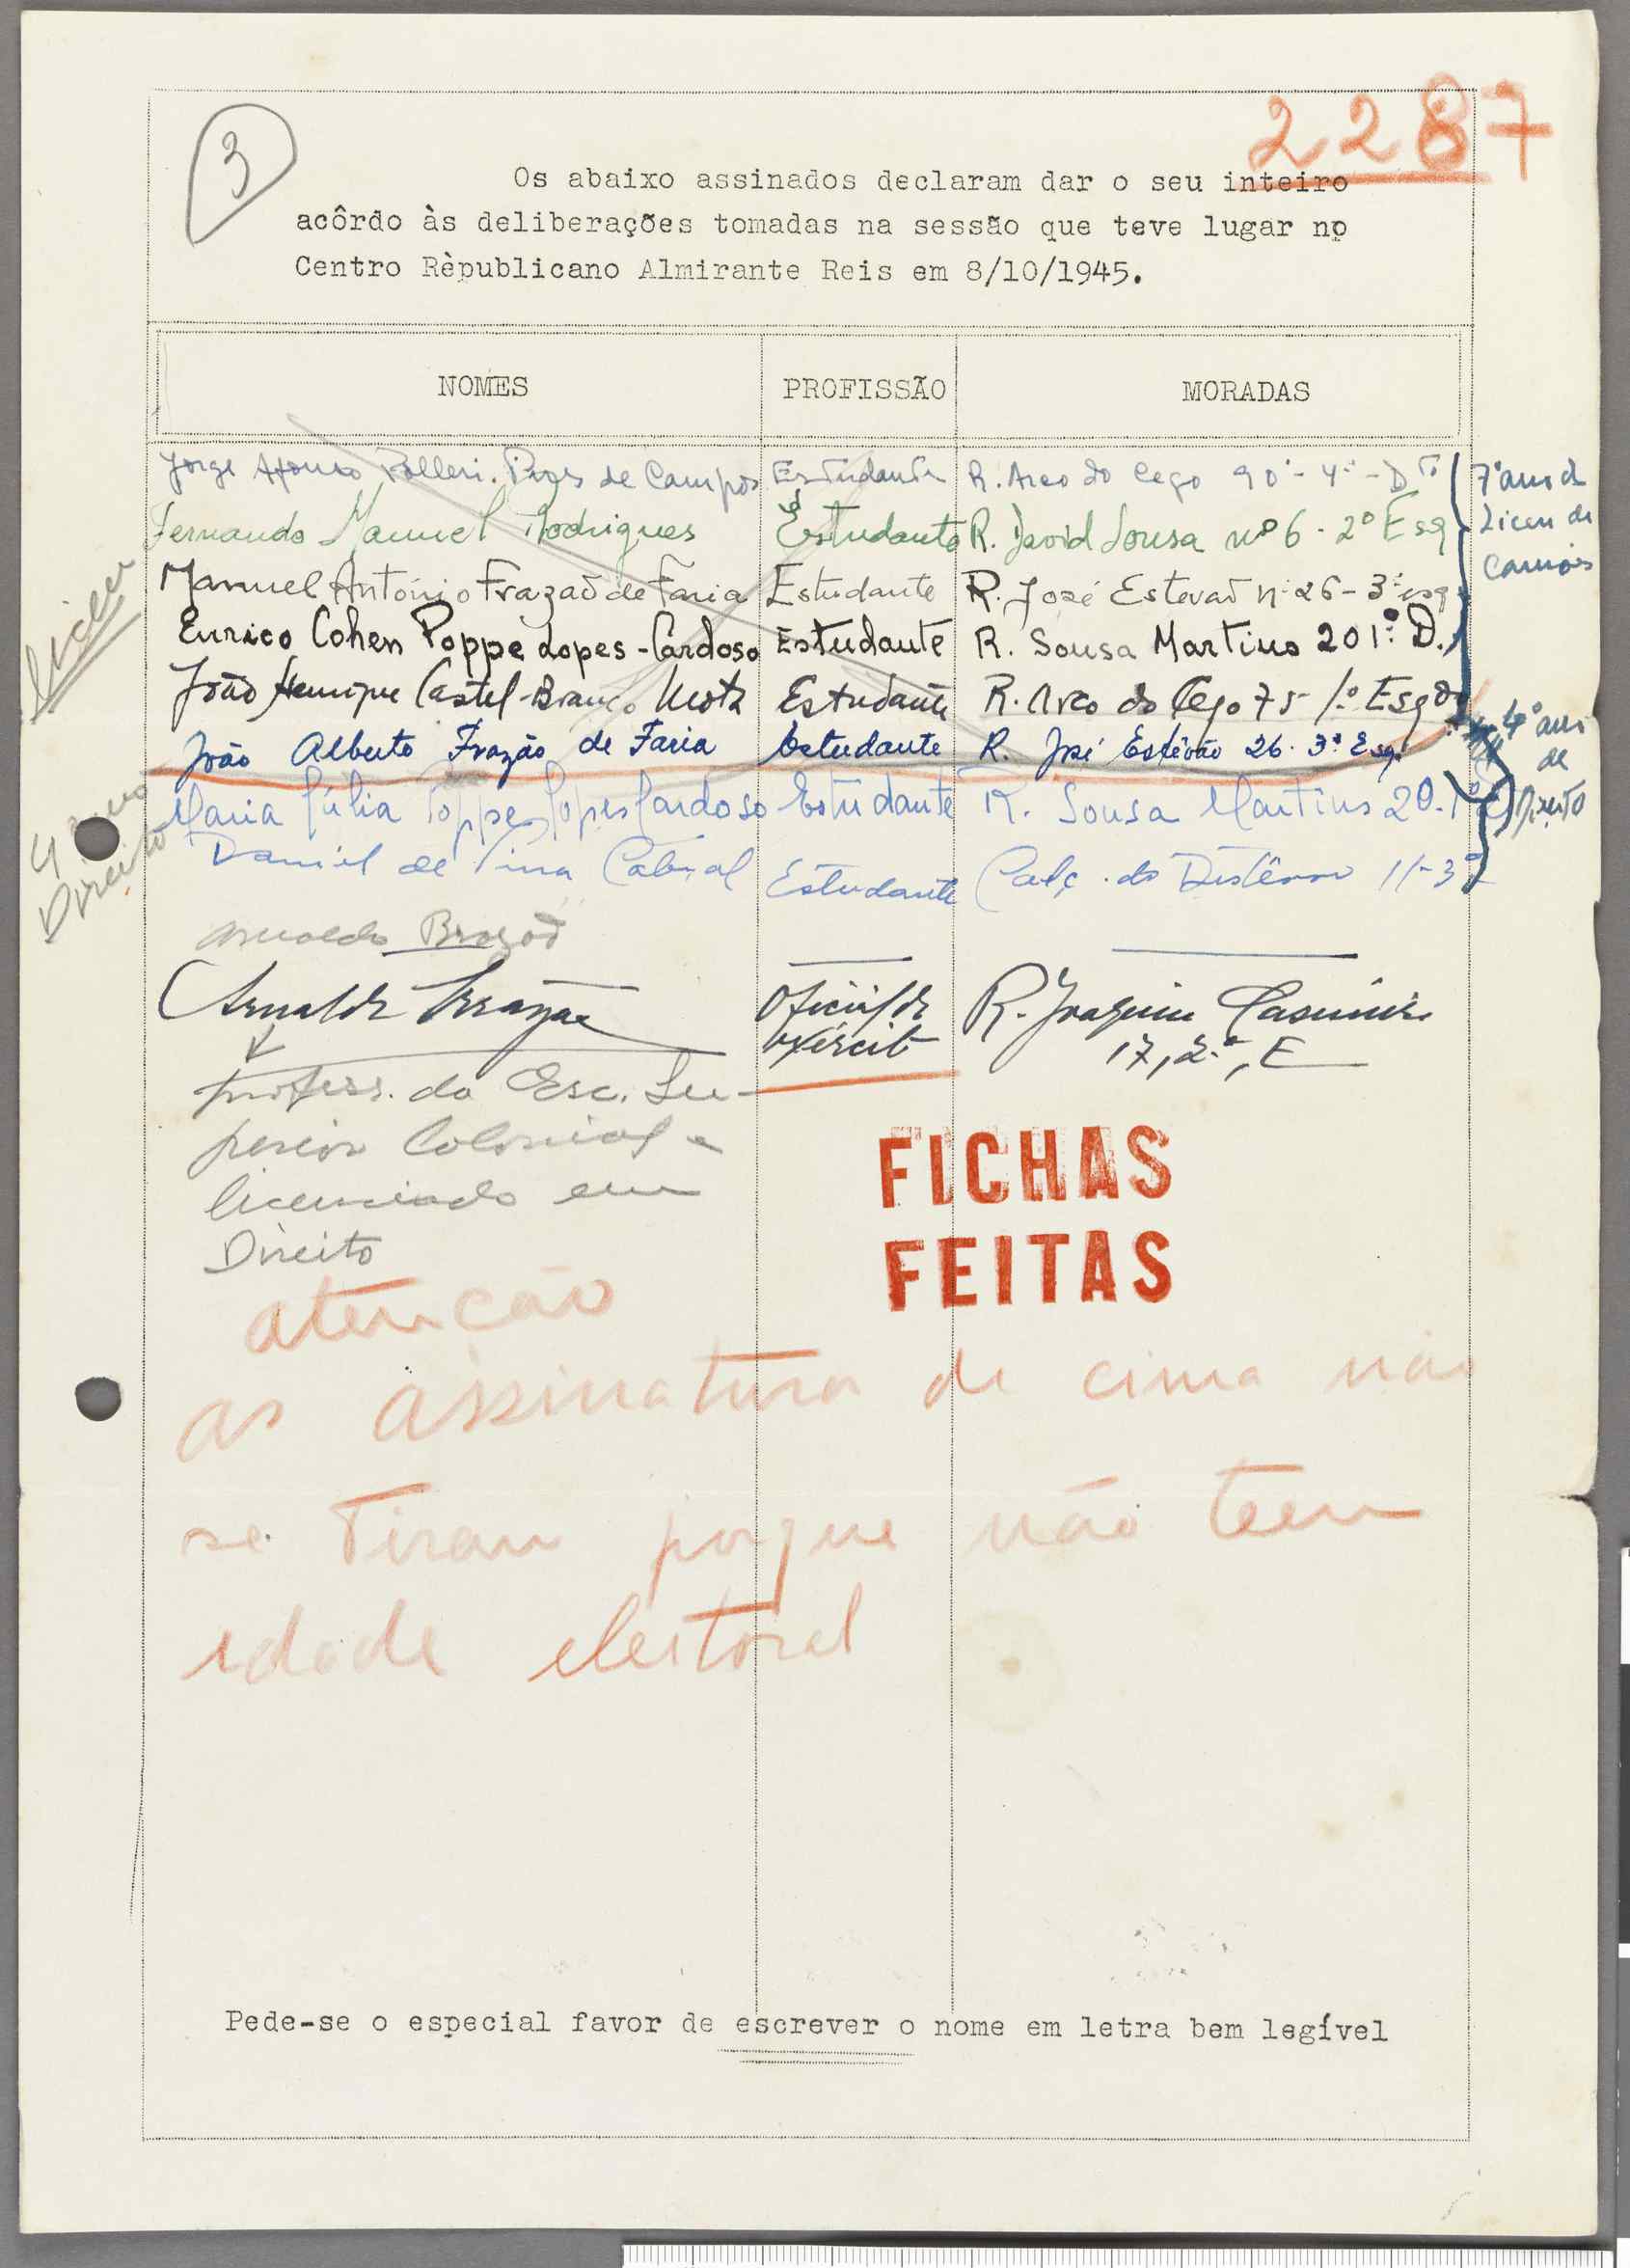 3
2287
Os abaixo assinados declaram dar o seu inteiro
acôrdo às deliberações tomadas na sessão que teve lugar no
Centro Rèpublicano Almirante Reis em 8/10/1945.
NOMES PROFISSÃO MORADAS
Jorge Afonso Polleri. Pires de Campos Estudante R. Arco do Cego 90-4º-Dto
Fernando Manuel Rodrigues Estudante R. David Sousa nº 6-2º Esq
Manuel António Frazão de Faria Estudante R. José Estevão nº 26-3º esq
Eurico Cohen Poppe Lopes-Cardoso Estudante R. Sousa Martins 20 1º D.
João Henrique Castel-Branco Estudante R. Arco do Cego 75 1º Esqdo
João Alberto Frazão de Faria Estudante R. José Estêvão 26. 3º Esq.
Maria Júlia Poppe Lopes Cardoso Estudante R. Sousa Martins 20-1º
Daniel de Pina Cabral Estudante Calç. do Destêrro 11-3º
7º ano do
Liceu de
Camões
4º ano
de
Direito
Liceu
4 ano
Direito
Arnaldo Brazão
Arnaldo Brazão Oficial do exército R. Joaquim Casimiro
17, 2º, E
profess. da Esc. Su-
perior Colonial e
licenciado em
Direito
FICHAS
FEITAS
atenção
as assinatura de cima não
se tiram porque não teem
idade eleitoral
Pede-se o especial favor de escrever o nome em letra bem legível